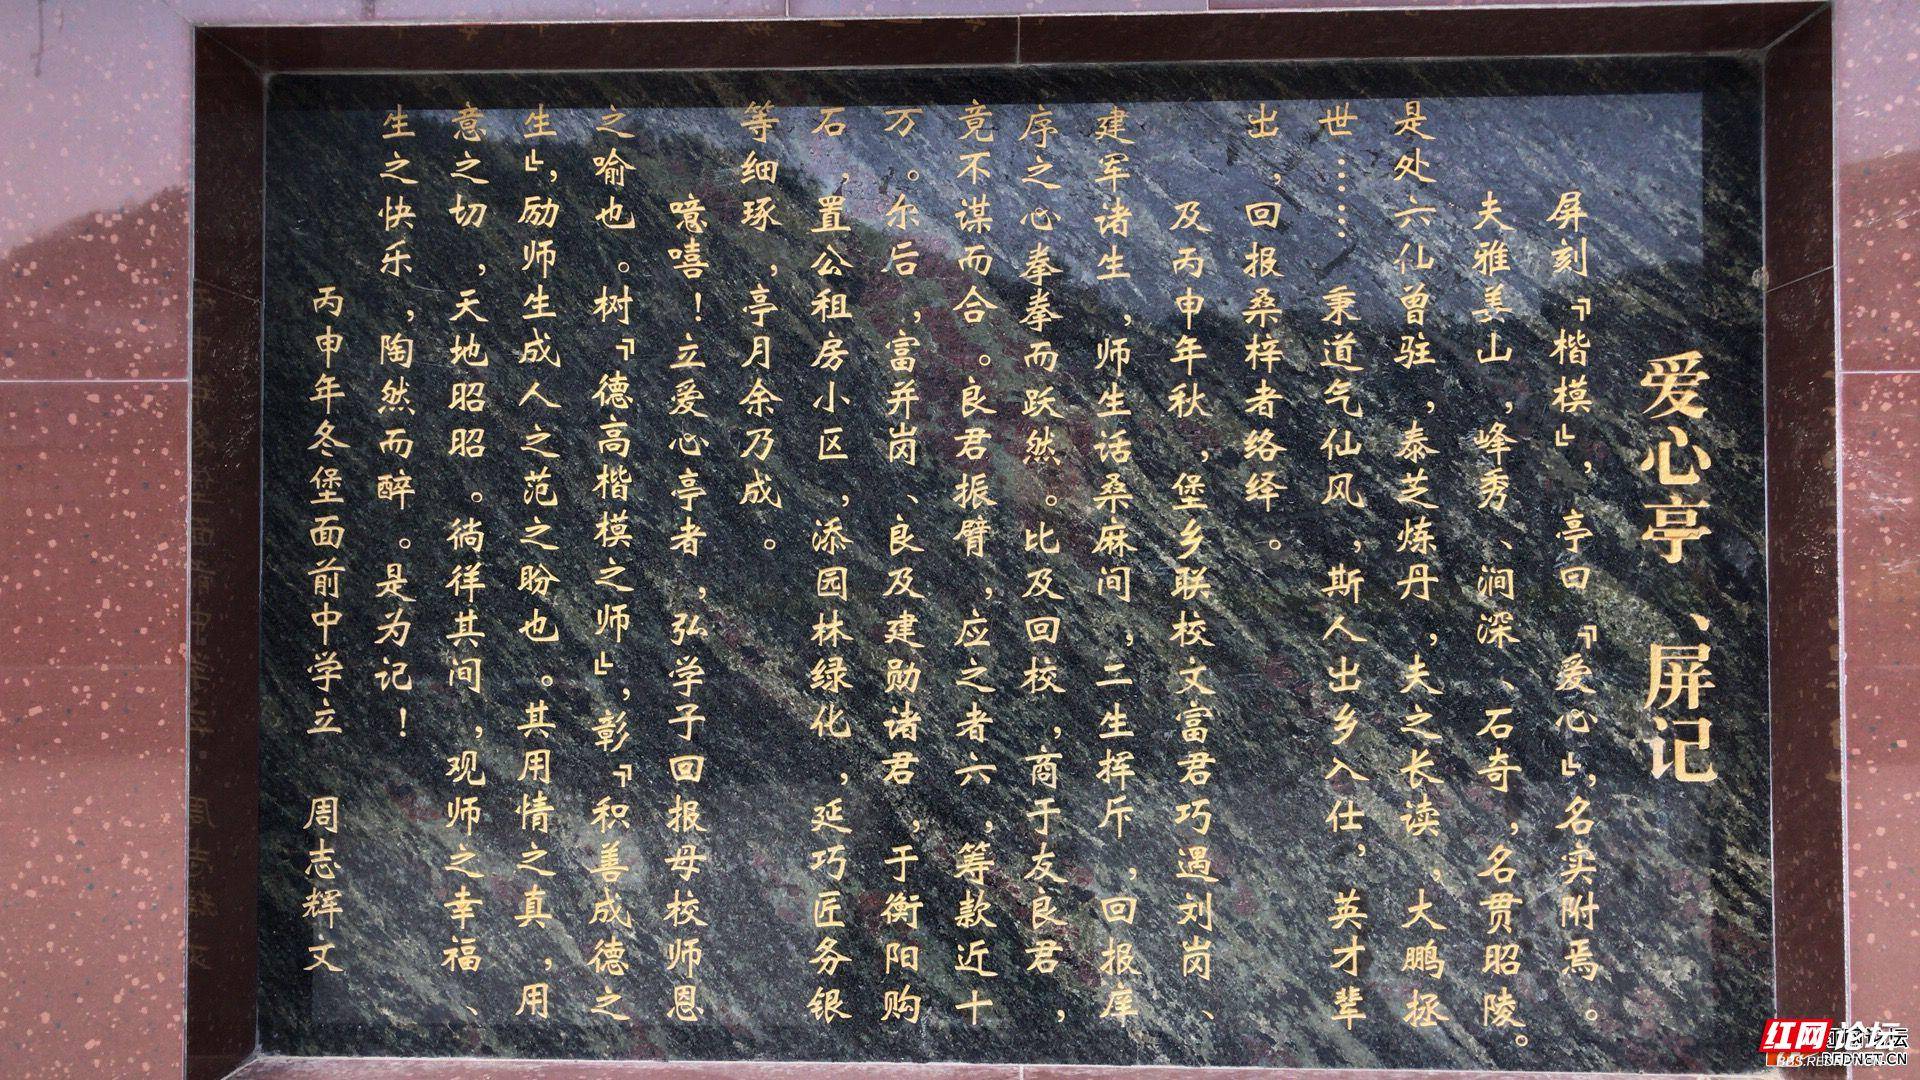 爱心亭、屏记
屏刻『楷模』，亭曰『爱心』，名实附焉。
夫雅美山，峰秀、涧深、石奇，名贯昭陵。
是处六仙曾驻，泰芝炼丹，夫之长读，大鹏拯
世……秉道气仙风，斯人出乡入仕，英才辈
出，回报桑梓者络绎。
及丙申年秋，堡乡联校文富君巧遇刘岗、
建军诸生，师生话桑麻间，二生挥斥，回报庠
序之心拳拳而跃然。比及回校，商于友良君，
竟不谋而合。良君振臂，应之者六，筹款近十
万。尔后，富并岗、良及建勋诸君，于衡阳购
石，置公租房小区，添园林绿化，延巧匠务银
等细琢，亭月余乃成。
噫嘻！立爱心亭者，弘学子回报母校师恩
之喻也。树『德高楷模之师』，彰『积善成德之
生』，励师生成人之范之盼也。其用情之真，用
意之切，天地昭昭。徜徉其间，观师之幸福、
生之快乐，陶然而醉。是为记！
丙申年冬堡面前中学立 周志辉文
红网论坛
BBS.REDNET.CN
REDNET.CN